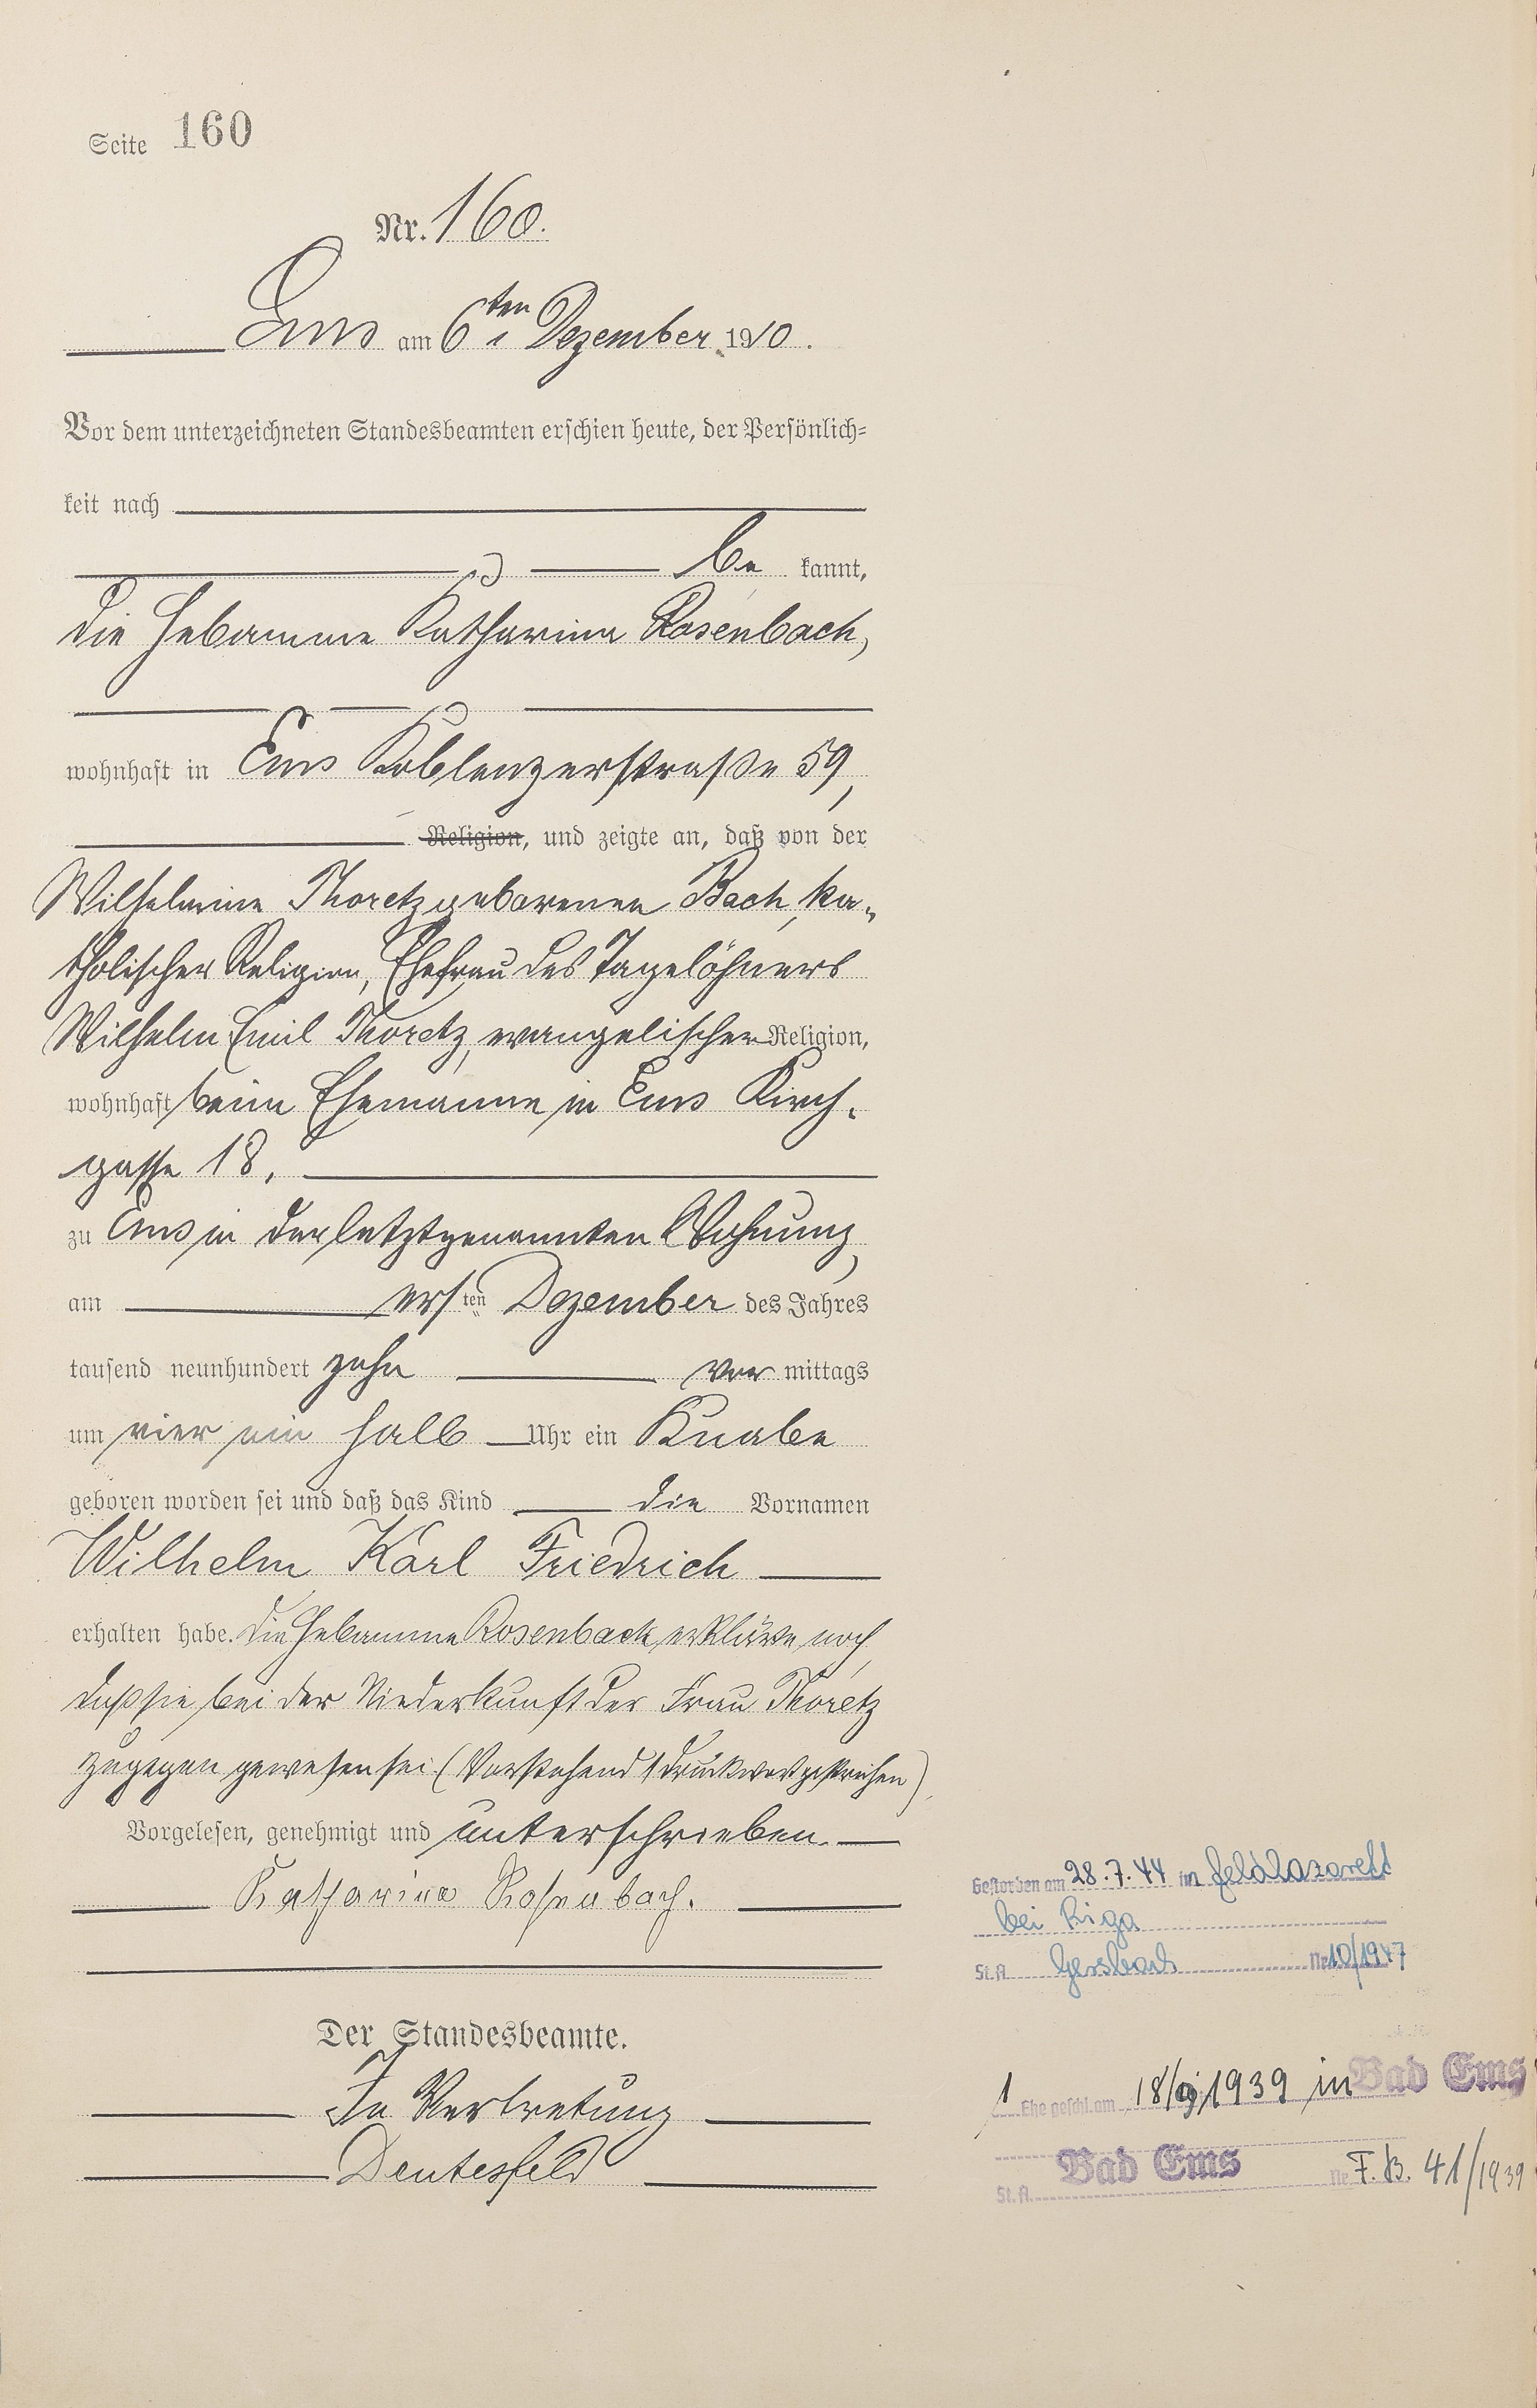 Seite 160
Nr. 160.
Ems am 6ten Dezember 1910.
Vor dem unterzeichneten Standesbeamten erschien heute, der Persönlich-
keit nach
be kannt,
die Hebamme Katharina Rosenbach,
wohnhaft in Ems Koblenzerstraße 59,
Religion, und zeigte an, daß von der
Wilhelmine Thoretz geborenen Bach, ka-
tholischer Religion, Ehefrau des Tagelöhners
Wilhelm Emil Thoretz, evangelischer Religion,
wohnhaft beim Ehemanne in Ems Kirch-
gasse 18,
zu Ems in der letztgenannten Wohnung,
am ersten Dezember des Jahres
tausend neunhundert zehn vor mittags
um vier ein halb Uhr ein Knabe
geboren worden sei und daß das Kind die Vornamen
Wilhelm Karl Friedrich
erhalten habe. Die Hebamme Rosenbach erklärte noch,
daß sie bei der Niederkunft der Frau Thoretz
zugegen gewesen sei (Vorstehend 1 Druckwort gestrichen).
Vorgelesen, genehmigt und unterschrieben.
Katharina Rosenbach.
Der Standesbeamte.
In Vertretung
Deutesfeld
Gestorben am 28.7.44 im Feldlazarett
bei Riga
St.A. Nr. 10/1947
1 Ehe geschl. am 18/9/1939 in Bad Ems
St.A. Bad Ems Nr. F.B. 41/1939